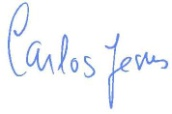 Carlos Jesus